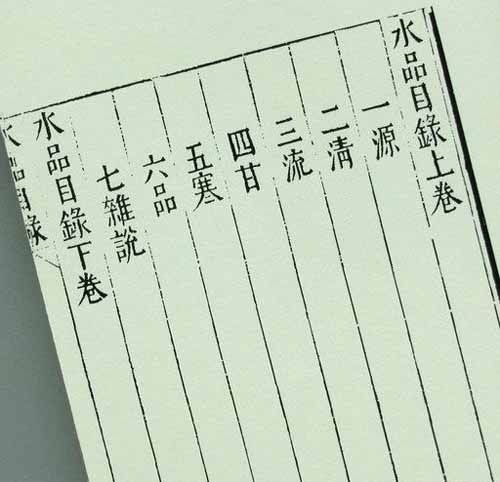 水品目錄上卷
一源
二清
三流
四甘
五寒
六品
七雜說
水品目錄下卷
水品目錄